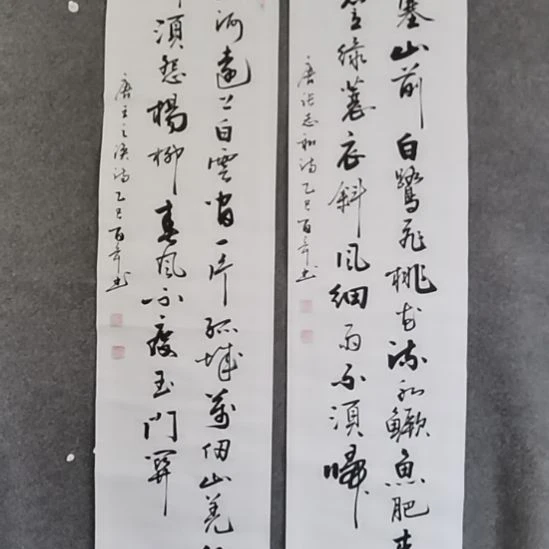 塞山前白鷺飛桃花流水鱖魚肥
笠綠蓑衣斜風細雨不須歸
唐張志和詩乙巳百年书
河遠上白雲間一片孤城萬仞山羌
須怨楊柳春風不度玉門關
唐王之渙詩乙巳百年书